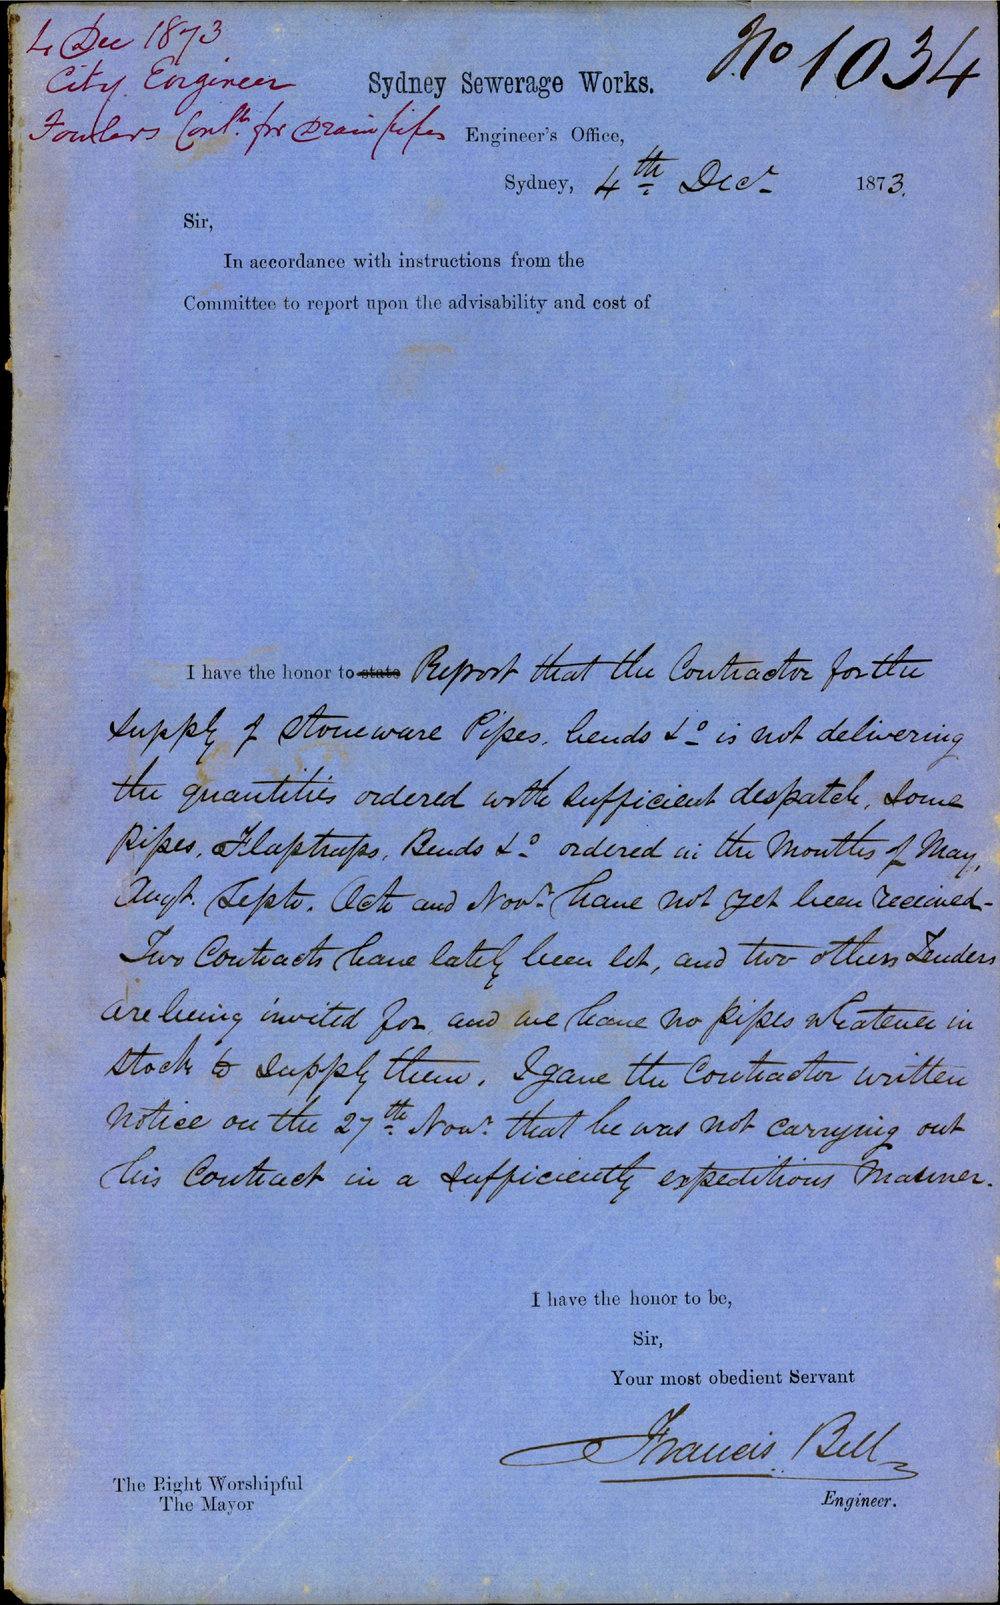 4 Dec 1873
City Engineer
Fowlers Cont. for Drain Pipes
No 1034
Sydney Sewerage Works.
Engineer's Office,
Sydney, 4th Decr 1873.
Sir,
In accordance with instructions from the
Committee to report upon the advisability and cost of
I have the honor to state Report that the Contractor for the
supply of Stoneware Pipes, bends &c is not delivering
the quantities ordered with sufficient despatch, some
pipes, Flaptraps, Bends &c ordered in the Months of May,
Augt. Septr. Octr and Novr. have not yet been received-
Two Contracts have lately been let, and two others Tenders
are being invited for, and we have no pipes whatever in
stock to supply them. I gave the Contractor written
notice on the 27th Novr. that he was not carrying out
his Contract in a sufficiently expeditious manner.
I have the honor to be,
Sir,
Your most obedient Servant
Francis Bell
Engineer.
The Right Worshipful
The Mayor